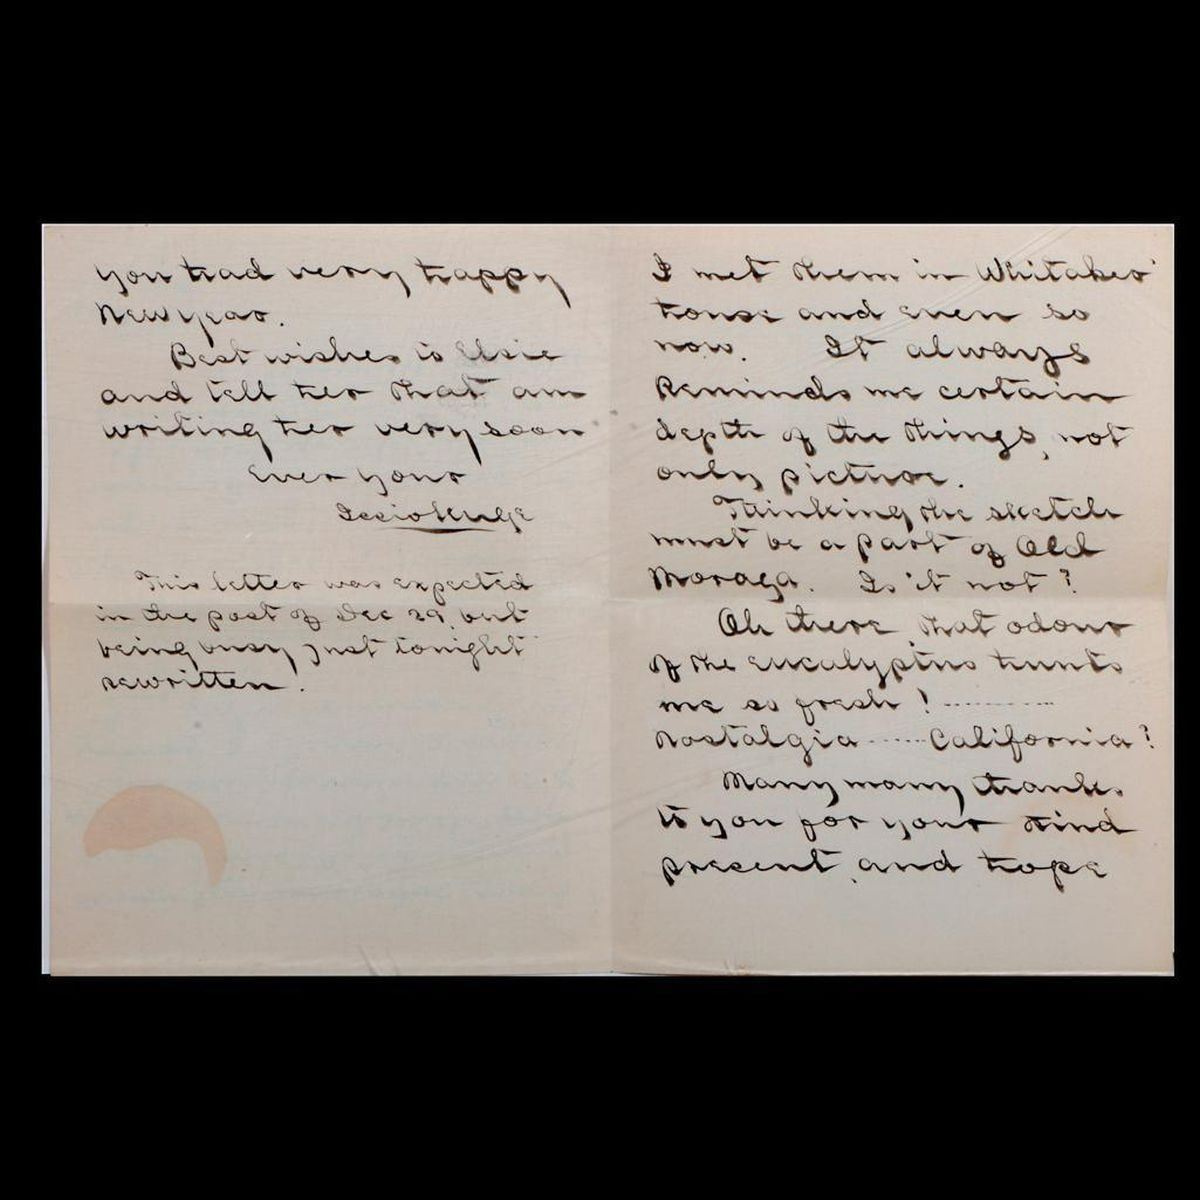 I met them in Whitaker'
house and even so
now. It always
Reminds me certain
depth of the things, not
only picture.
Thinking the sketch
must be a part of Old
Moraga. Is it not?
Oh there, that odour
of the eucalyptus hunts
me so fresh! ..........
Nostalgia ...... California?
Many many thanks
to you for your kind
present, and hope
you had very happy
New year.
Best wishes to Elsie
and tell her that am
writing her very soon
Ever your
Issio Kuge
This letter was expected
in the post of Dec 29, but
being busy, just tonight
rewritten.